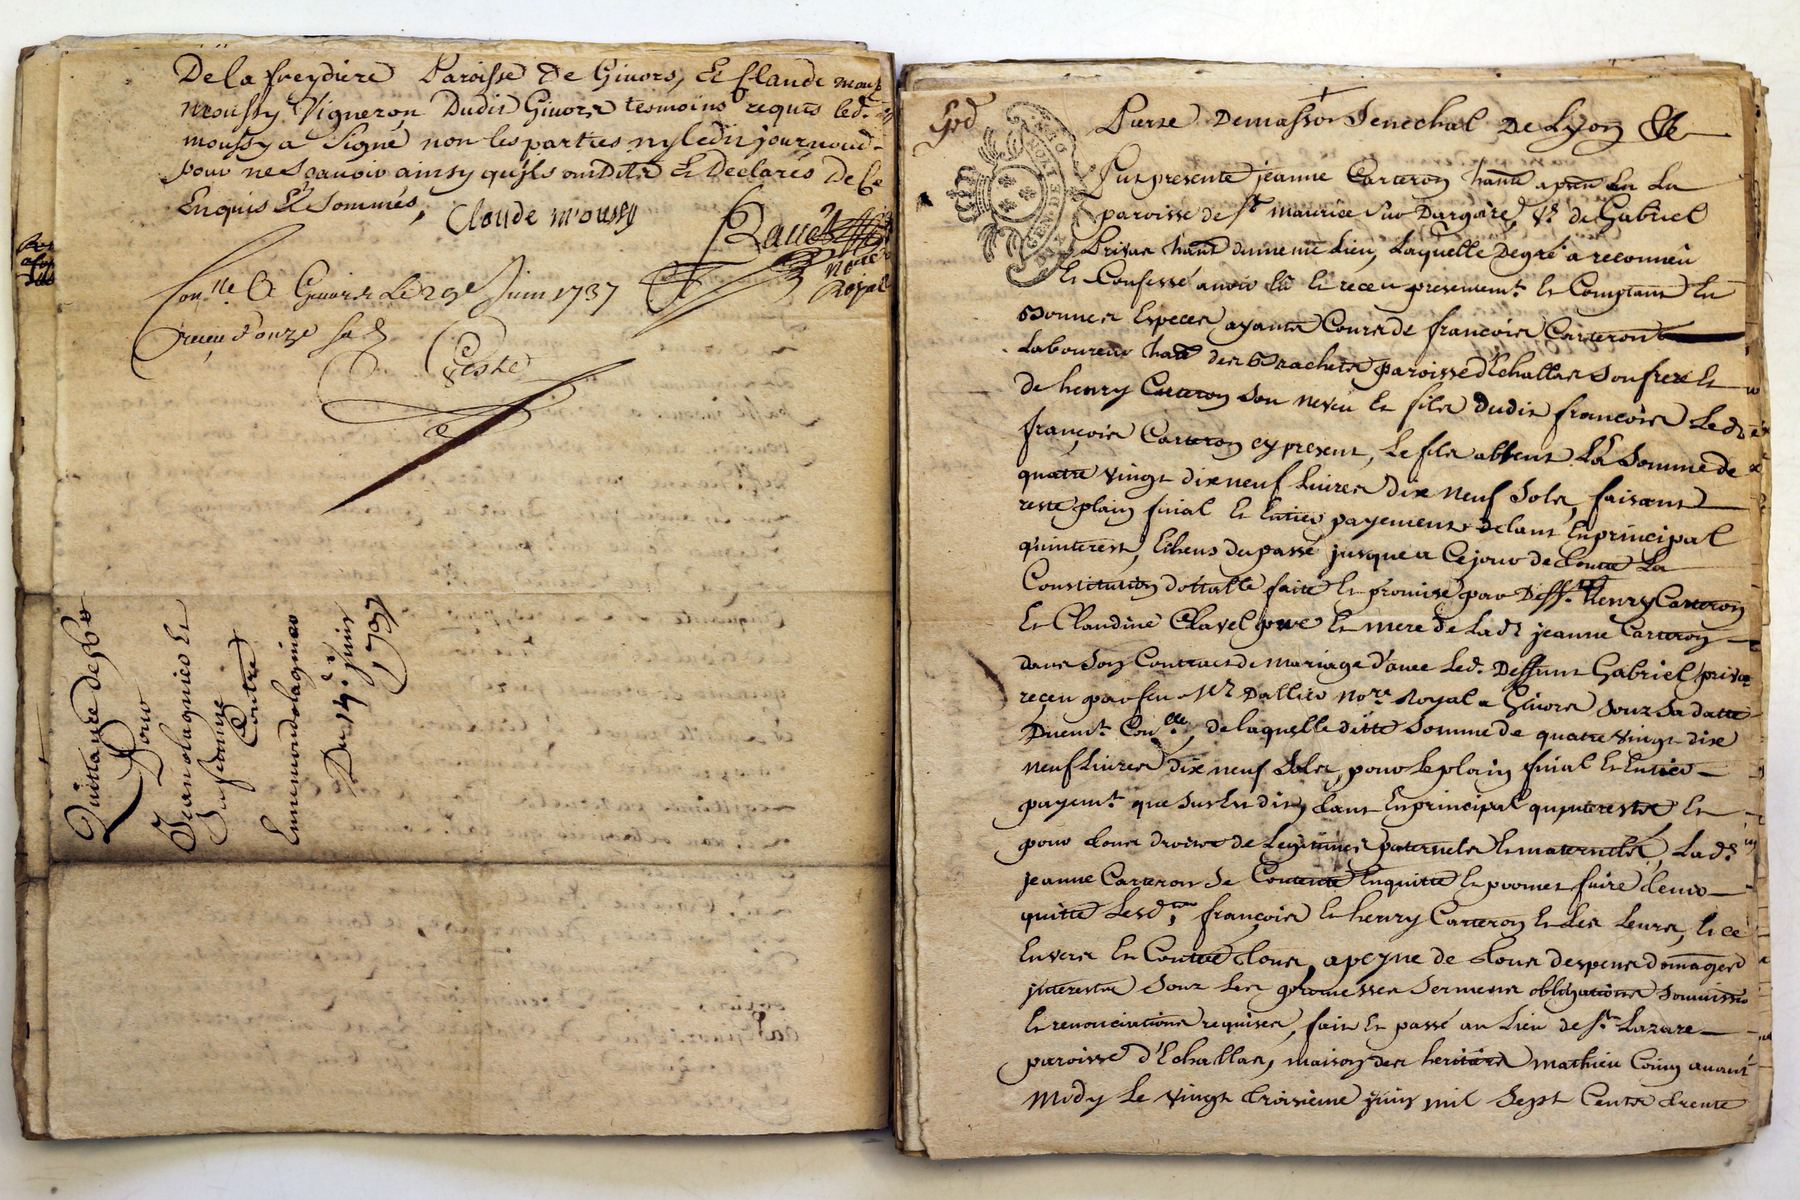 De la freydiere Paroisse de Givors, Et Claude mous
moussy Vigneron Dudit Givors tesmoins requis led.
moussy a Signé non les parties ny ledit journoud
pour ne Scavoir ainsy qu'ils ont Dit Et Declarés De Ce
Enquis Et Sommés,
Claude moussy
Notre
Royal
Conlle A Givors Le 29e Juin 1737
receu d'ouze sols
Quittance de 56#
Pour
Jean olagnier Et
Sa femme
Contre
Ennemond olagnier
Du 14e juin
1737
Gnd
DE LYON
GENER
Pierre Demasso Senechal De Lyon &c
Fut presente jeanne Carteron hante apnt en La
paroisse de St maurice Sur Dargoire, Ve de Gabriel
Privas hant du meme Lieu, Laquelle Degré a reconneu
Et Confessé avoir Eü Et receu presement Et Comptant En
Bonnes Especes ayants Cours de francois Carteron
Laboureur hant des Brachets paroisse d'Echallas Son frere Et
de henry Carteron Son neveu Et fils dudit francois Led
francois Carteron cy present, Le fils absent La Somme de
quatre vingt dix neuf Livres Dix neuf Sols, faisant
reste plain final Et Entier payement de tant En principal
qu'interest, Echeus du passé jusque a Ce jour de toute La
Constitution dottalle faite Et promise par Defft henry Carteron
Et Claudine Clavel pere Et mere de Lade jeanne Carteron
dans Son Contract de mariage d'avec Led. Deffunt Gabriel privas
receu par feu Me Dallier Nore Royal a Givors Souz Sa datte
Duemt Conlle, de laquelle ditte Somme de quatre vingt dix
neuf Livres dix neuf Sols, pour Le plain final Et Entier
payemt que Sus Est dit, tant En principal qu'interestz Et
pour tous droits de Legitimes paternels Et maternels, Lade
jeanne Carteron Se Contente En quitte Et promet faire tenir
quitte Lesd. francois Et henry Carteron Et Les Leurs, Et ce
Envers Et Contre tous, a peyne de tous despens domages
interestz Souz Les promesses Sermens obligations Soumission
Et renonciations requises, fait Et passé au Lieu de St Lazare
paroisse d'Echallas, maison des heritiers mathieu Coing avant
Midy Le vingt troisieme juin mil Sept Cents trente